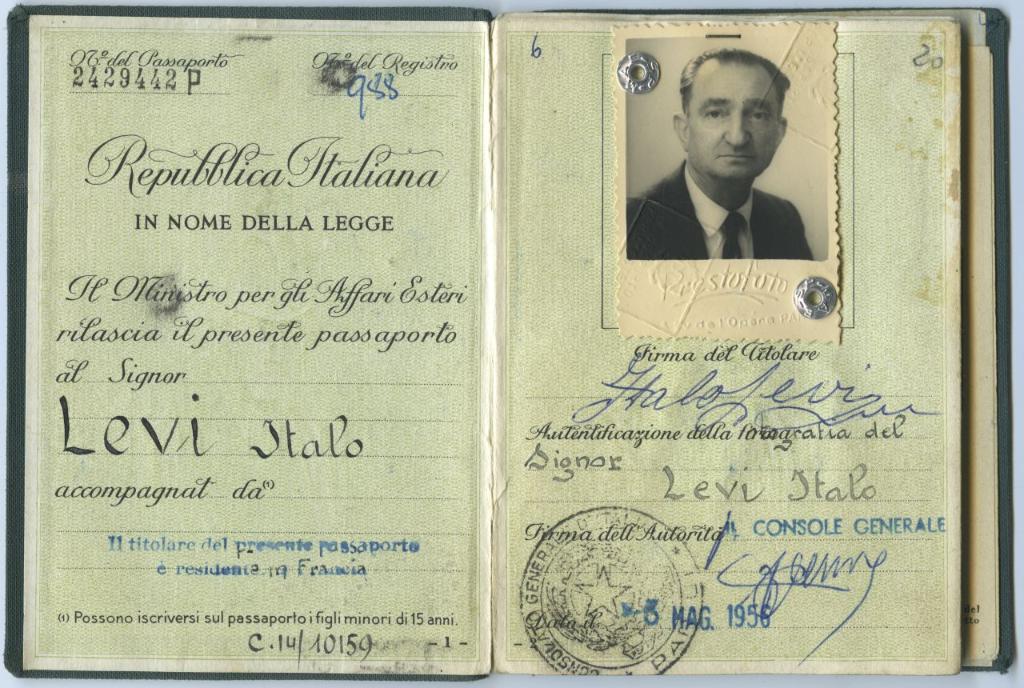 Nº del Passaporto
2429442 P
Nº del Registro
988
Repubblica Italiana
IN NOME DELLA LEGGE
Il Ministro per gli Affari Esteri
rilascia il presente passaporto
al Signor
Levi Italo
accompagnat da(1)
Il titolare del presente passaporto
è residente in Francia
(1) Possono iscriversi sul passaporto i figli minori di 15 anni.
C.14/10159
- 1 -
6
20
de l'Opéra PA
Firma del Titolare
Italo Levi
Autentificazione della fotografia del
Signor
Levi Italo
Firma dell'Autorità
IL CONSOLE GENERALE
Data il
-3 MAG. 1956